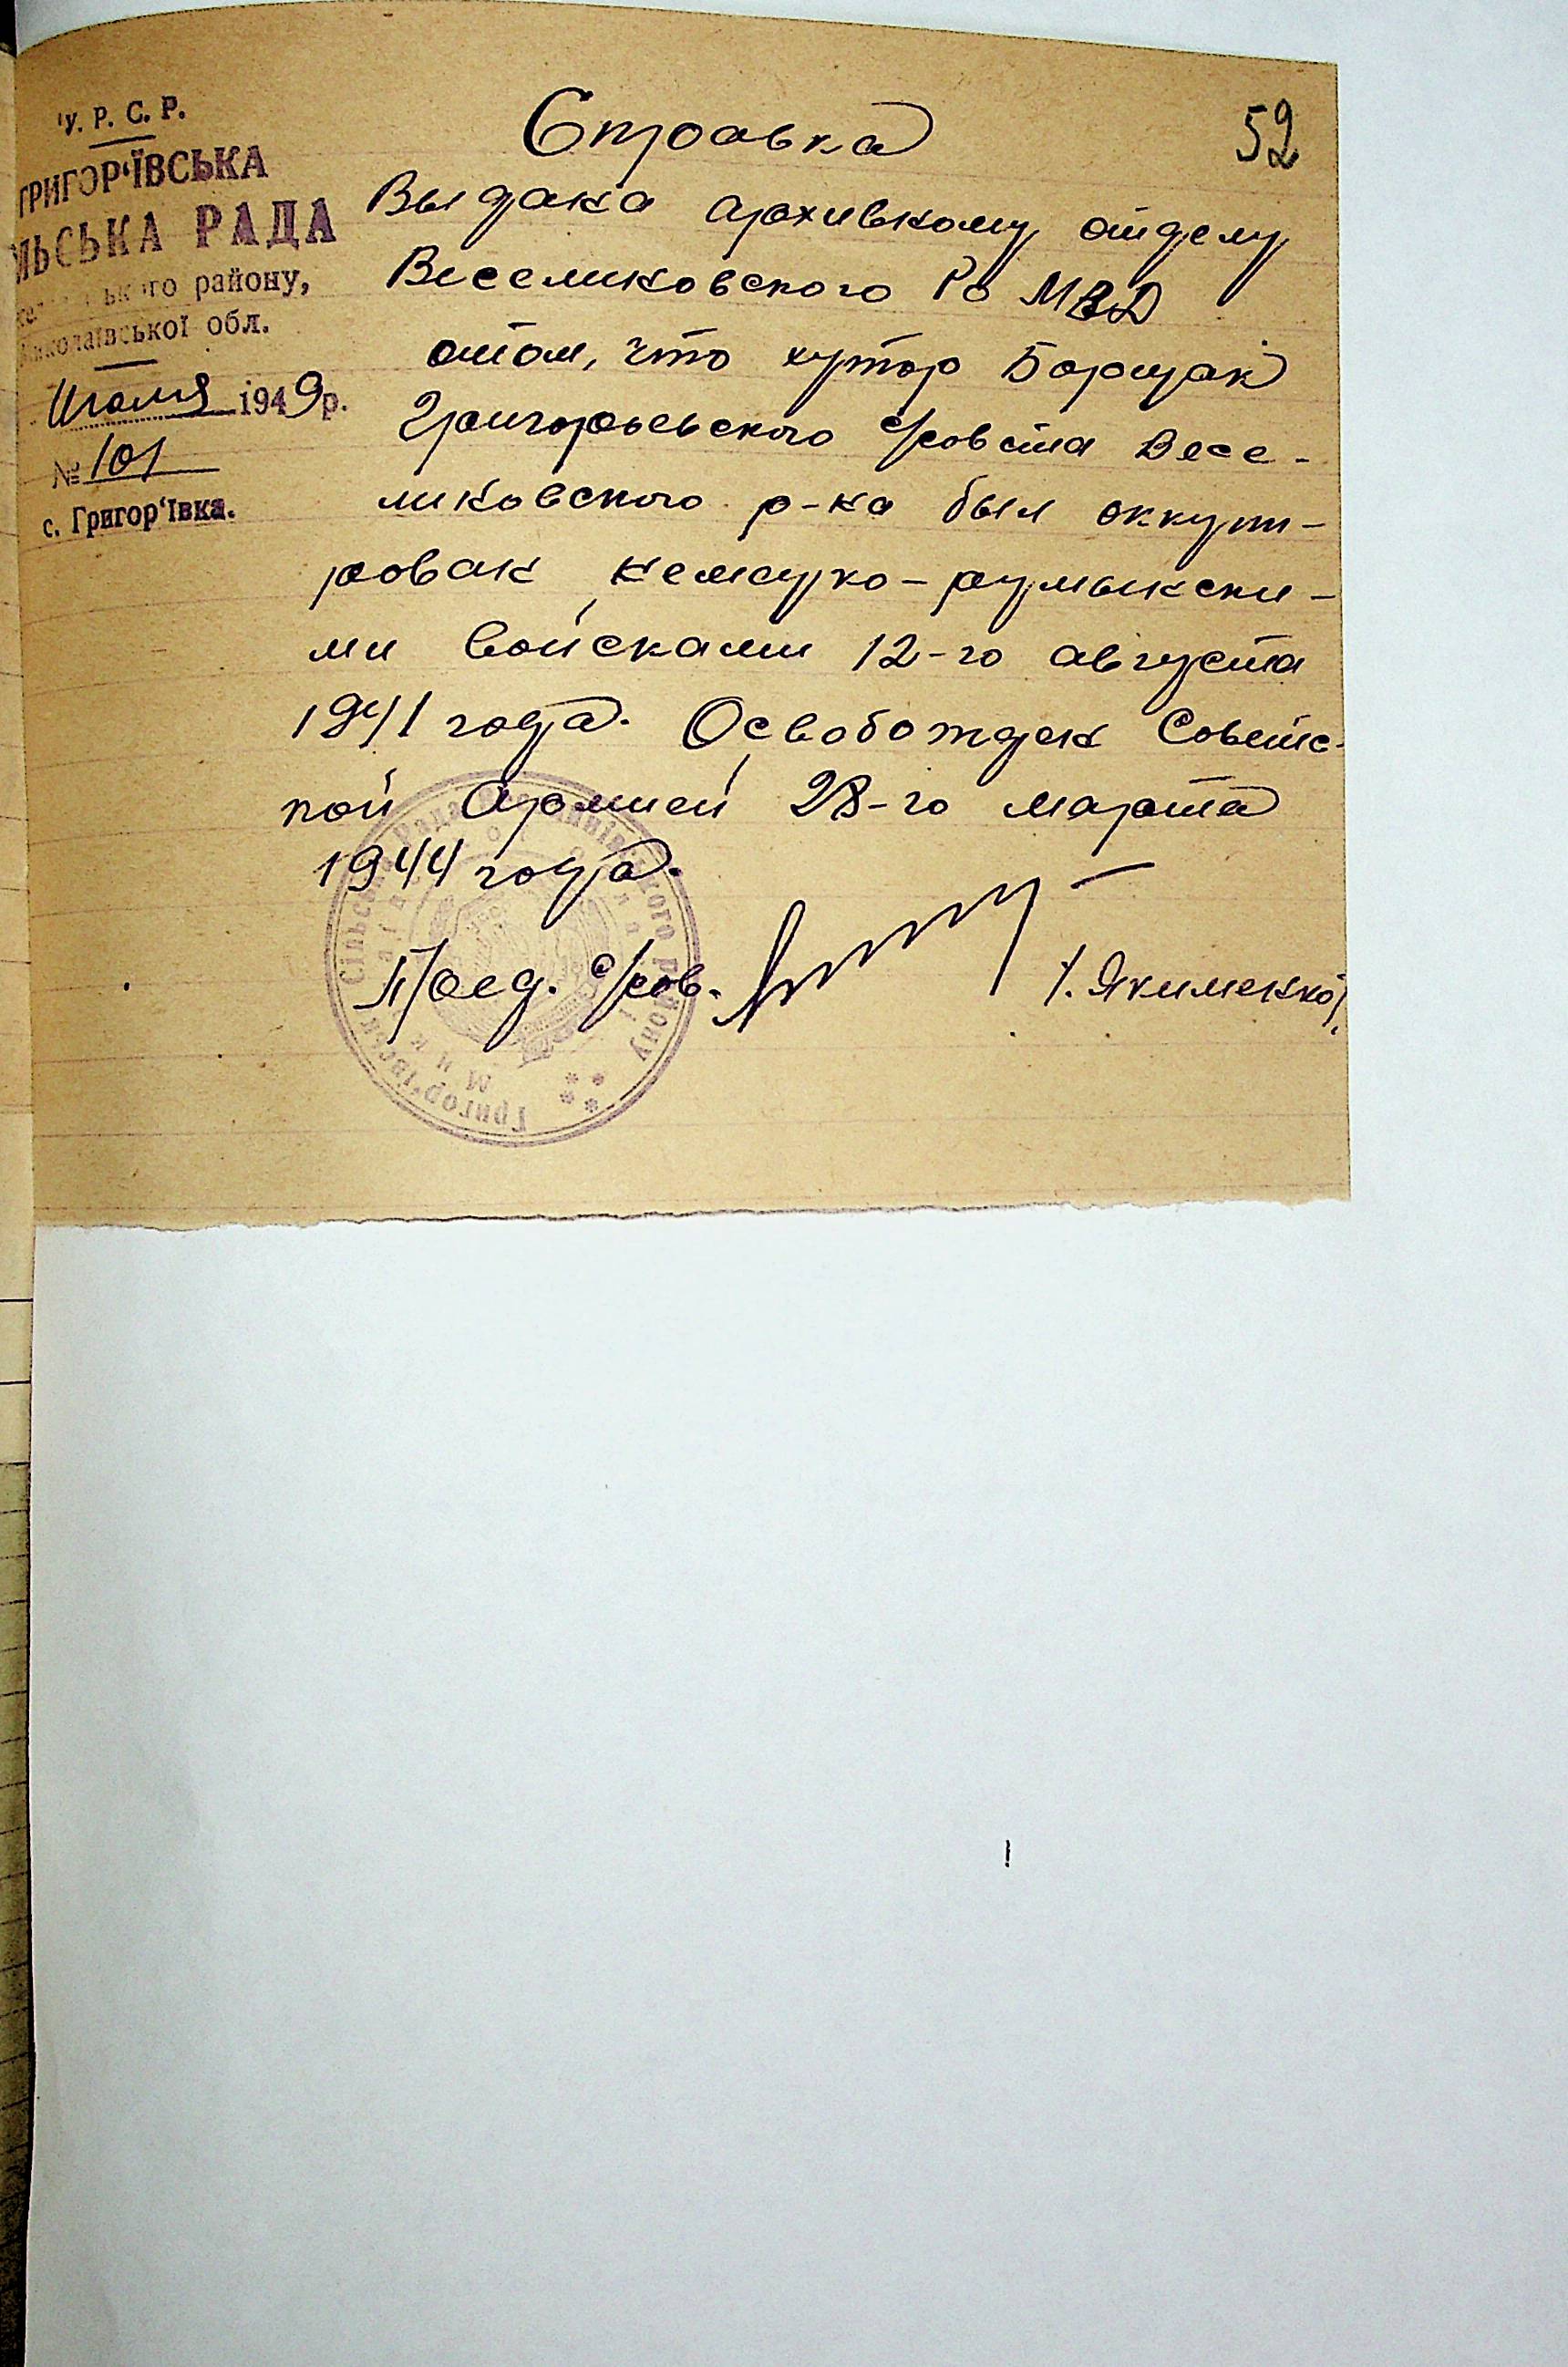 У. Р. С. Р.
ГРИГОР‘ЇВСЬКА
ІЛЬСЬКА РАДА
району,
Миколаївської обл.
Июля 1949р.
№ 101
с. Григор‘ївка.
52
Справка
Выдана архивному отделу
Веселиновского Ро МВД
отом, что хутор Борщак
Григорьевского с/совета Весе-
линовского р-на был оккупи-
рован немецко-румынски-
ми войсками 12-го августа
1941 года. Освобожден Советс-
кой Армией 28-го марта
1944 года.
Пред. с/сов.
/. Якименко/.
Григор‘ївськ Сільська Рада району